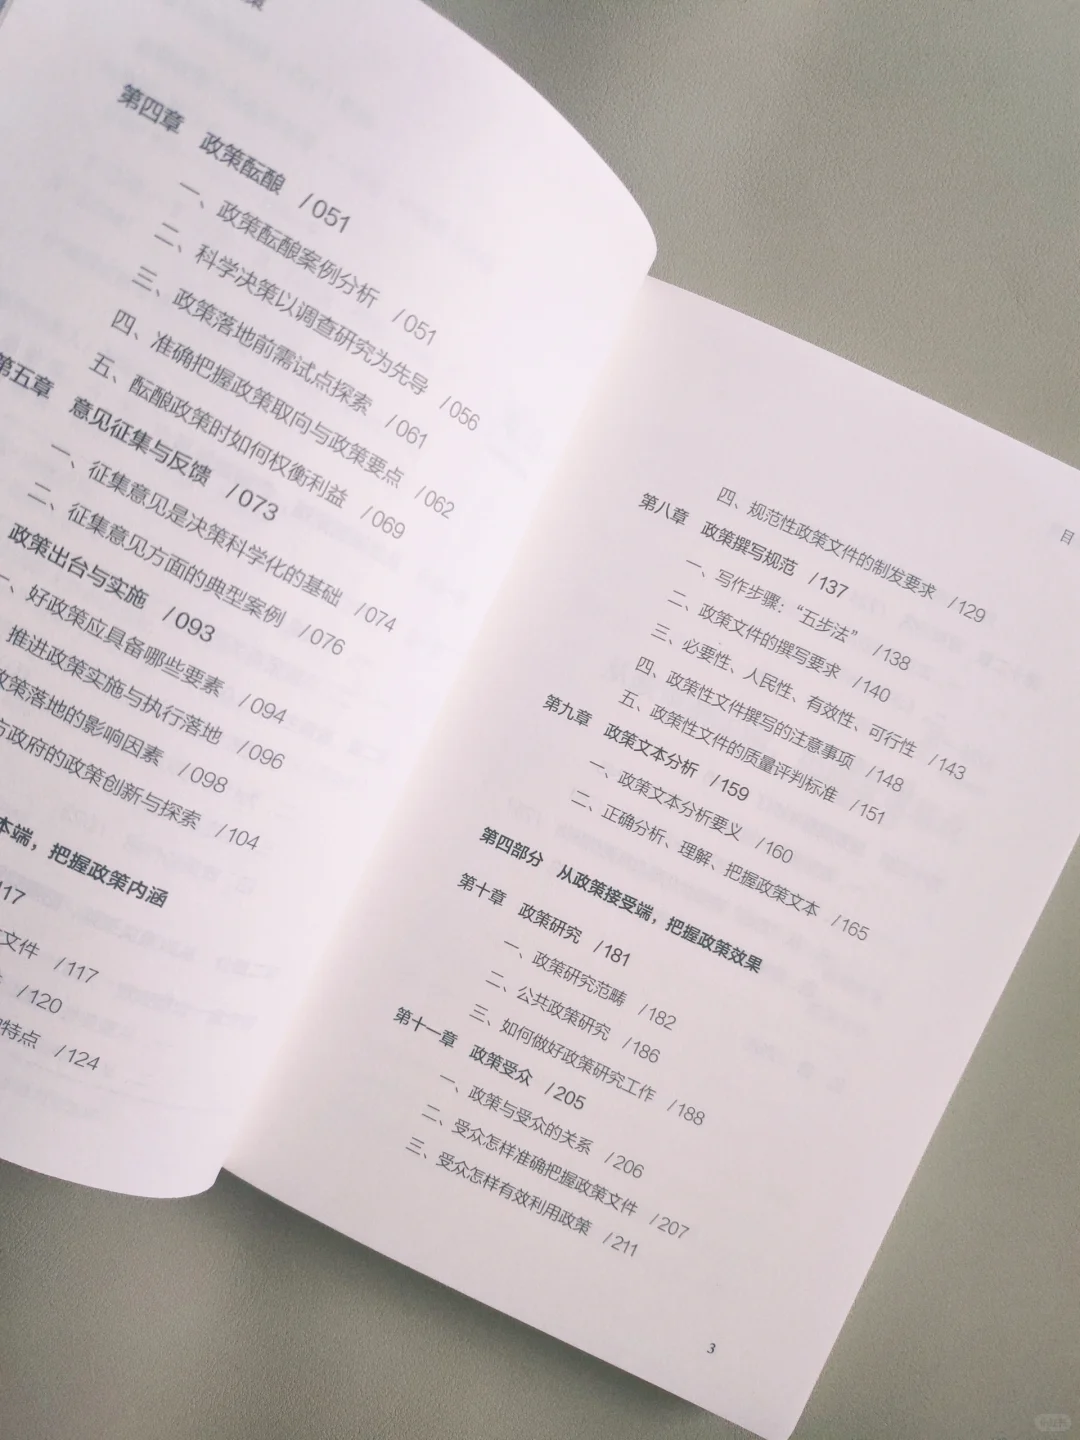 第四章 政策酝酿 /051
一、政策酝酿案例分析 /051
二、科学决策以调查研究为先导 /056
三、政策落地前需试点探索 /061
四、准确把握政策取向与政策要点 /062
五、酝酿政策时如何权衡利益 /069
第五章 意见征集与反馈 /073
一、征集意见是决策科学化的基础 /074
二、征集意见方面的典型案例 /076
政策出台与实施 /093
一、好政策应具备哪些要素 /094
推进政策实施与执行落地 /096
政策落地的影响因素 /098
方政府的政策创新与探索 /104
本端，把握政策内涵
117
文件 /117
/120
特点 /124
目
四、规范性政策文件的制发要求 /129
第八章 政策撰写规范 /137
一、写作步骤：“五步法” /138
二、政策文件的撰写要求 /140
三、必要性、人民性、有效性、可行性 /143
四、政策性文件撰写的注意事项 /148
五、政策性文件的质量评判标准 /151
第九章 政策文本分析 /159
一、政策文本分析要义 /160
二、正确分析、理解、把握政策文本 /165
第四部分 从政策接受端，把握政策效果
第十章 政策研究 /181
一、政策研究范畴 /182
二、公共政策研究 /186
三、如何做好政策研究工作 /188
第十一章 政策受众 /205
一、政策与受众的关系 /206
二、受众怎样准确把握政策文件 /207
三、受众怎样有效利用政策 /211
3